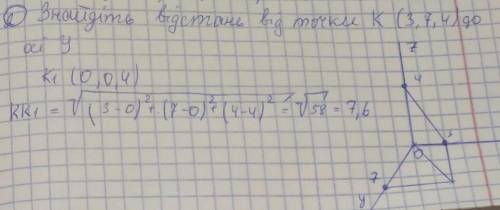 ② Знайдіть відстань від точки K (3,7,4) до
осі У
K₁ (0,0,4)
KK₁ = √(3-0)²+(7-0)²+(4-4)² = √58 = 7,6
z
4
3
0
7
y